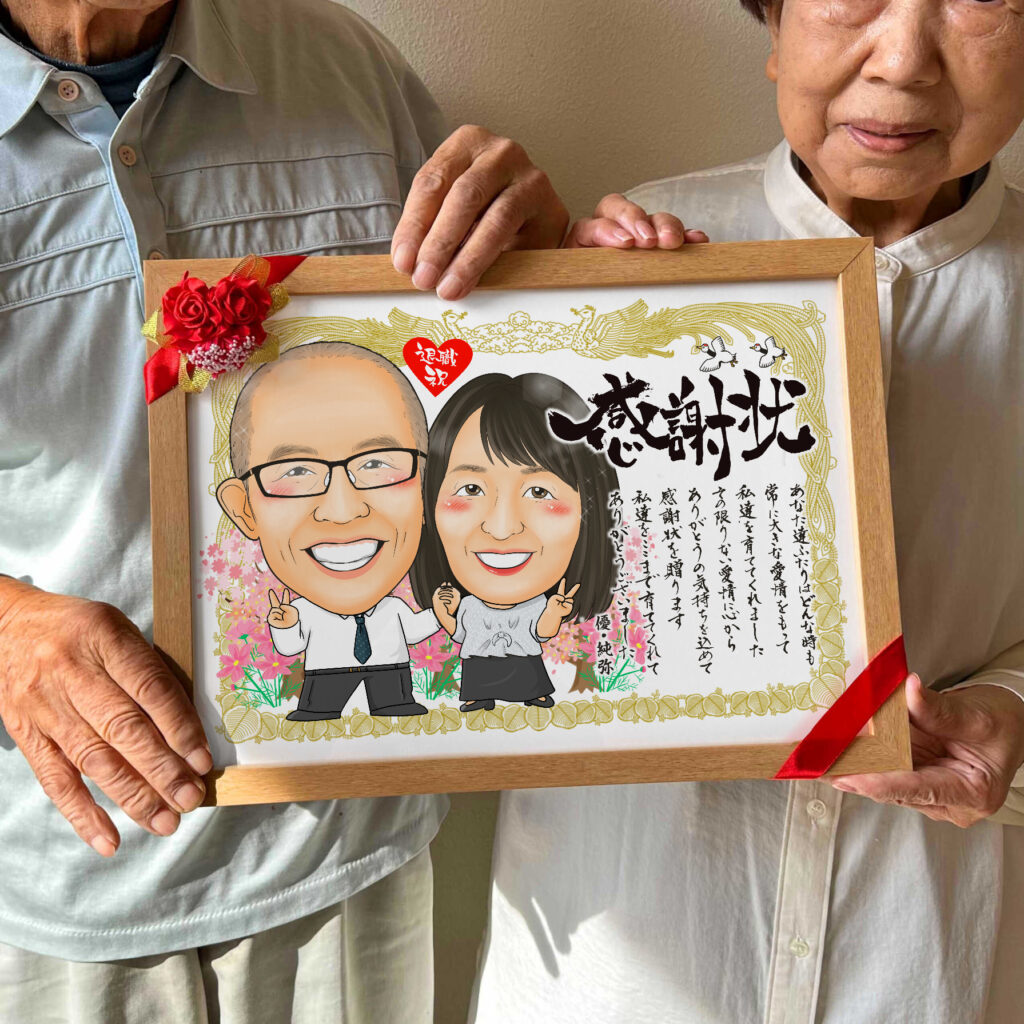 退職
祝
感謝状
あなた達ふたりはどんな時も
常に大きな愛情をもって
私達を育ててくれました
その限りない愛情に心から
ありがとうの気持ちを込めて
感謝状を贈ります
私達をここまで育ててくれて
ありがとうございました
優・純弥